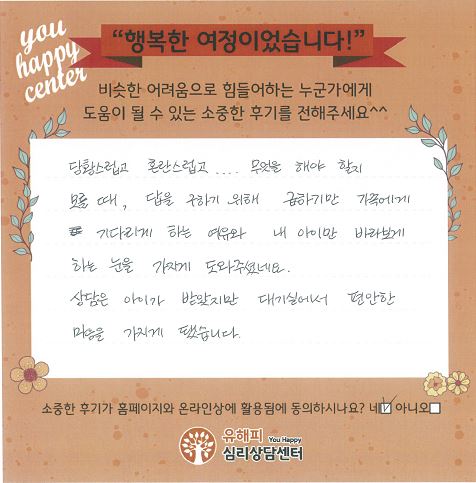 you
happy
center
“행복한 여정이었습니다!”
비슷한 어려움으로 힘들어하는 누군가에게
도움이 될 수 있는 소중한 후기를 전해주세요^^
당황스럽고 혼란스럽고.... 무엇을 해야 할지
모를 때, 답을 구하기 위해 급하기만 가족에게
기다리게 하는 여유와 내 아이만 바라보게
하는 눈을 가지게 도와주셨네요.
상담은 아이가 받았지만 대기실에서 편안한
마음을 가지게 됐습니다.
소중한 후기가 홈페이지와 온라인상에 활용됨에 동의하시나요? 네☑ 아니오☐
유해피 You Happy
심리상담센터